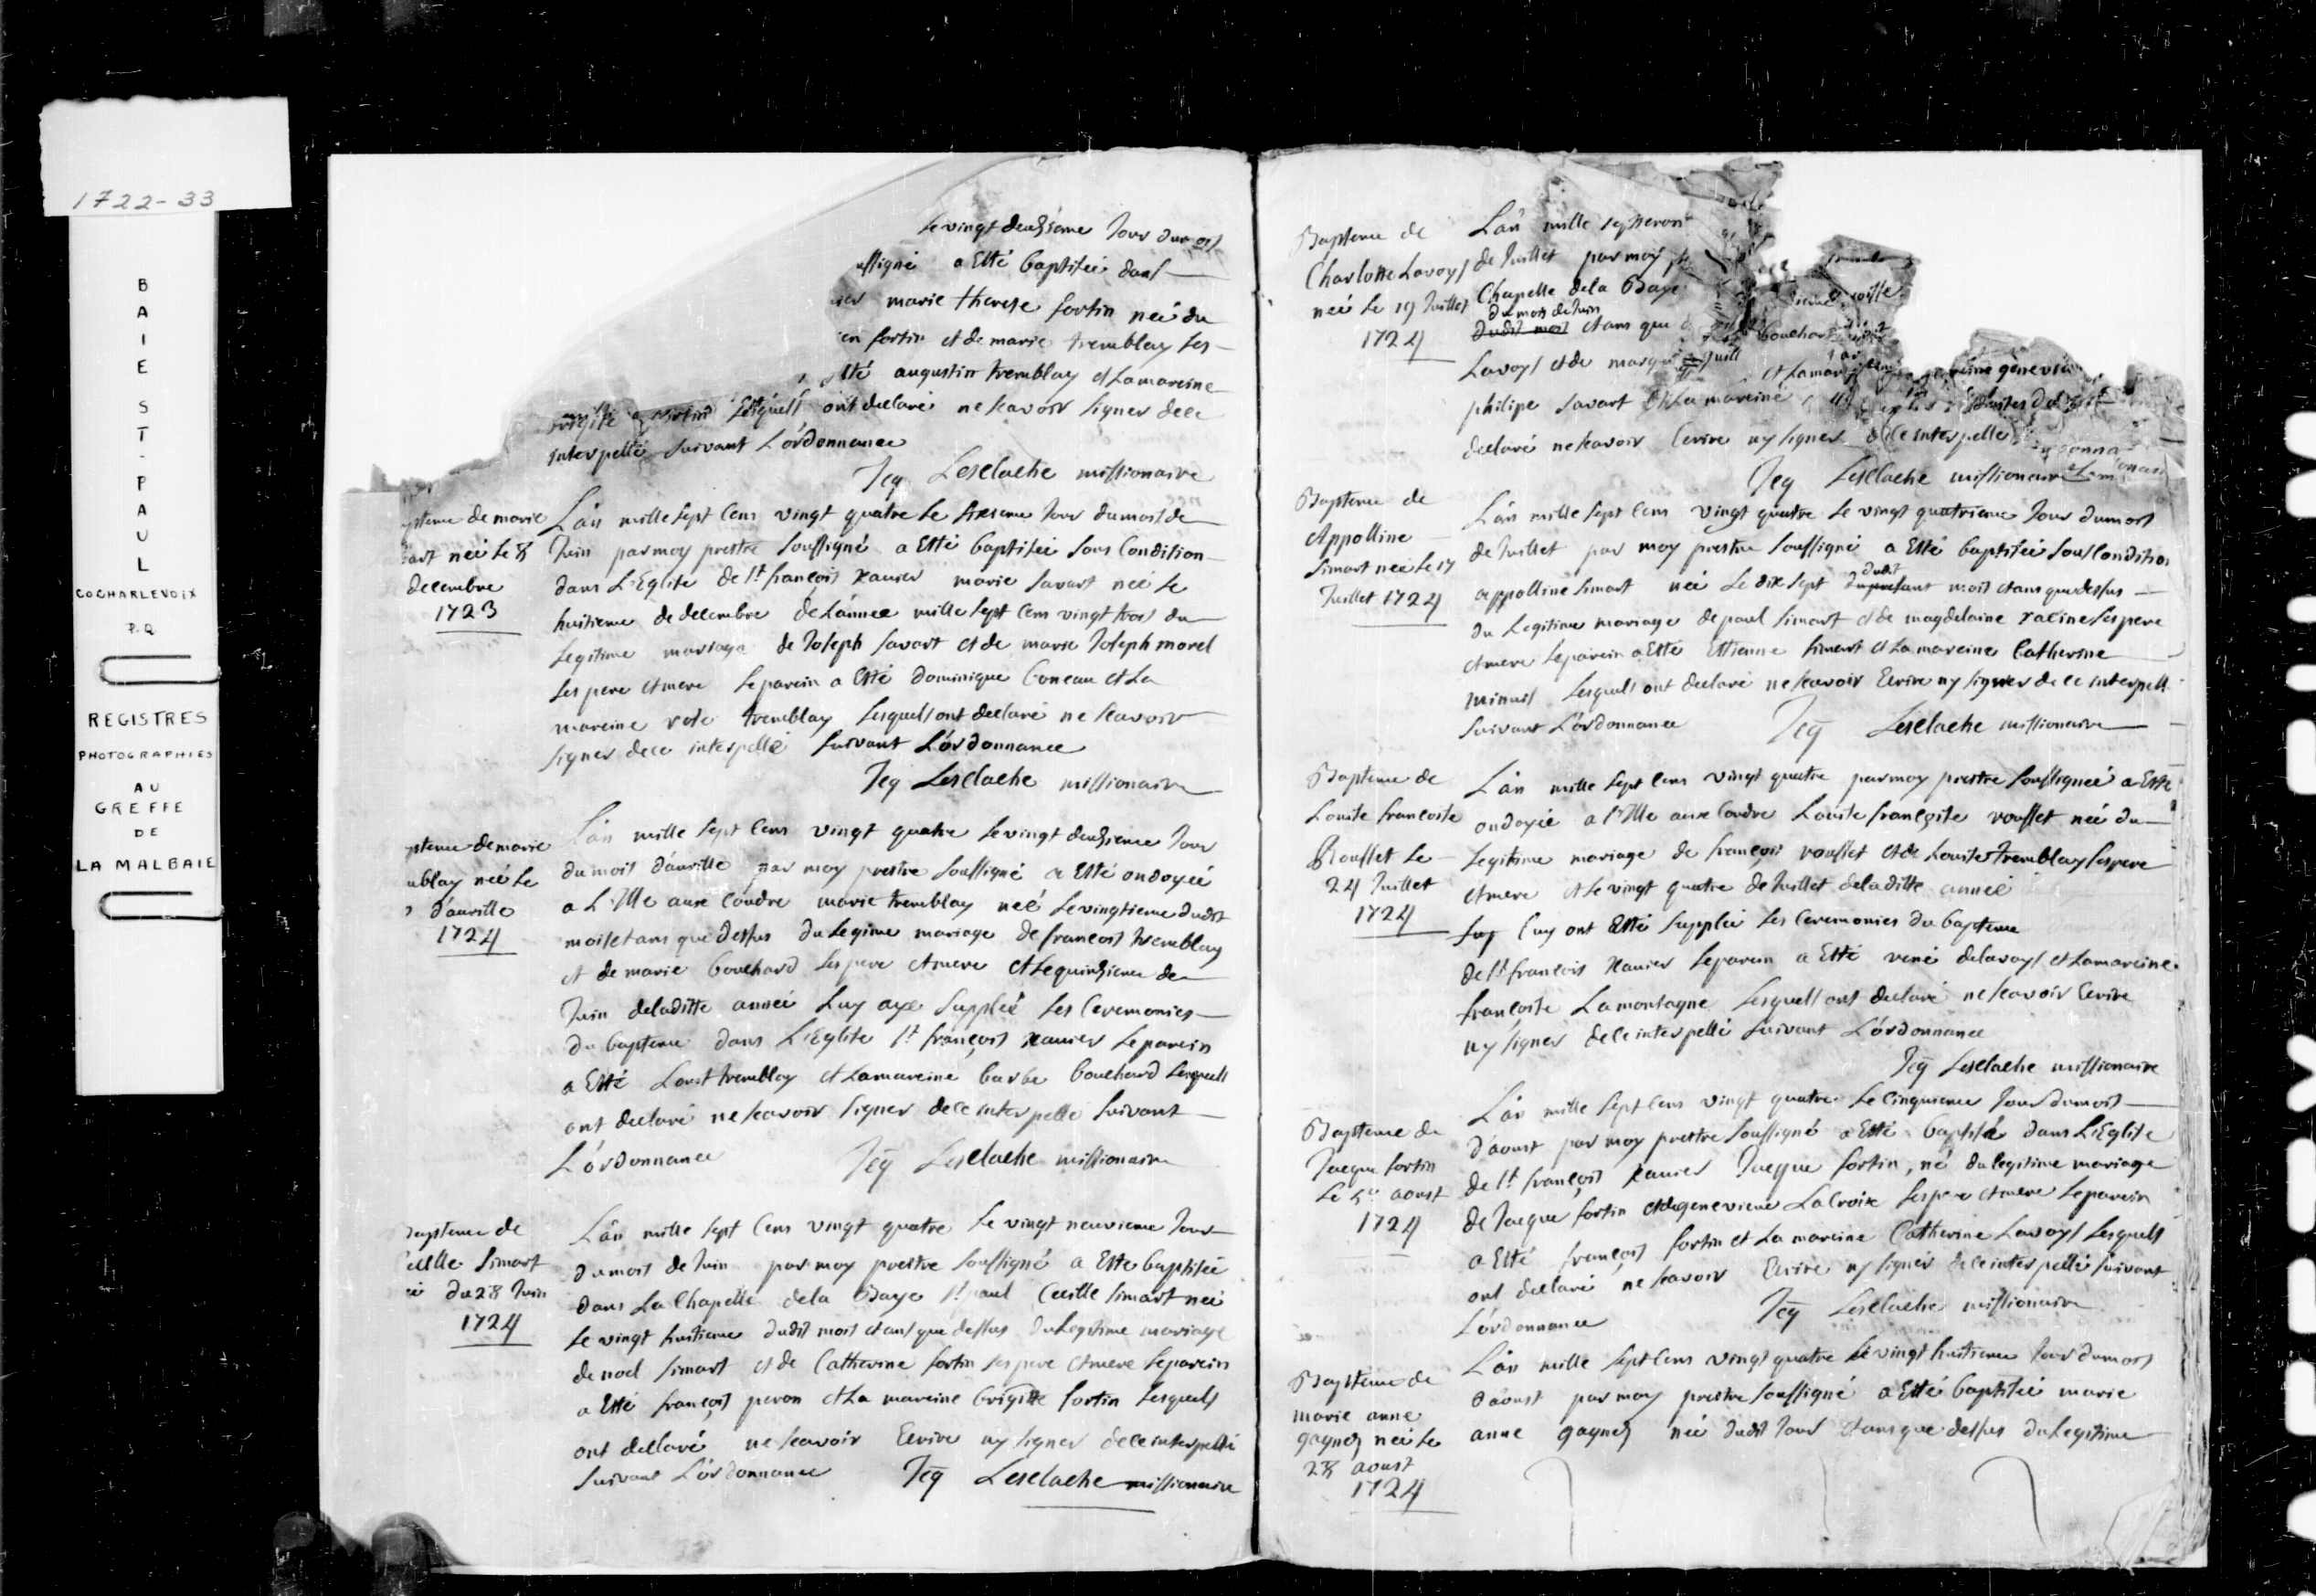 1722-33
BAIE ST-PAUL
CO CHARLEVOIX
P.Q.
REGISTRES
PHOTOGRAPHIES
AU
GREFFE
DE
LA MALBAIE
le vingt deuxieme Jour du
ussigné a Esté baptisée dans
marie therese fortin née du
fortin et de marie tremblay ses
sté augustin tremblay et La mareine
Lesquels ont declaré ne scavoir signer de ce
interpellé suivant L'ordonnance
Jeq Lesclache missionaire
pteme de marie
art née le 8
decembre
1723
L'an mille sept cens vingt quatre le sixieme Jour du mois de
Juin par moy prestre soussigné a Esté baptisée sous Condition
dans L'Eglise de st françois xavier marie savart née le
huitieme de decembre de L'année mille sept cens vingt trois du
Legitime mariage de Joseph savart et de marie Joseph morel
ses pere et mere Le parein a Esté dominique Coneau et La
mareine rose tremblay Lesquels ont declaré ne scavoir
signer de ce interpellé suivant L'ordonnance
Jeq Lesclache missionaire
pteme de marie
ublay née le
d'avrille
1724
L'an mille sept cens vingt quatre le vingt deuxieme Jour
du mois d'avrille par moy prestre soussigné a Esté ondoyée
a L'Ille aux Coudre marie tremblay née le vingtieme dudit
mois et ans que dessus du Legime mariage de francois tremblay
et de marie bouchard ses pere et mere et Le quinzieme de
Juin de laditte année Luy ayé supplée Les Ceremonies
du bapteme dans L'Eglise st françois xavier Le parein
a Esté Louis tremblay et La mareine barbe bouchard Lesquels
ont declaré ne scavoir signer de ce interpellé suivant
L'ordonnance Jeq Lesclache missionaire
bapteme de
cille simart
du 28 Juin
1724
L'an mille sept cens vingt quatre le vingt neuvieme Jour
du mois de Juin par moy prestre soussigné a Esté baptisée
dans La Chapelle de la Baye st paul Cecille simart née
le vingt huitieme dudit mois et ans que dessus du Legitime mariage
de noel simart et de Catherine fortin ses pere et mere Le parein
a Esté françois peron et La mareine brigitte fortin Lesquels
ont declaré ne scavoir Ecrire ny signer de ce interpellé
suivant L'ordonnance Jeq Lesclache missionaire
Bapteme de
Charlotte Lavoys
née le 19 Juillet
1724
L'an mille sept
de Juillet par moy
Chapelle de la Baye
du mois de Juin
dudit mois et ans que bouchart
Lavoys et de et La mar genevie
philipe savart et La mareine
declaré ne scavoir Ecrire ny signer de ce interpellé
Jeq Lesclache missionaire
Bapteme de
Appolline
simart née le 17
Juillet 1724
L'an mille sept cens vingt quatre le vingt quatrieme Jour du mois
de Juillet par moy prestre soussigné a Esté baptisée sous Condition
dudit
appolline simart née le dix sept du presant mois et ans que dessus
du Legitime mariage de paul simart et de magdelaine racine ses pere
et mere Le parein a Esté Ettienne simart et La mareine Catherine
Lesquels ont declaré ne scavoir Ecrire ny signer de ce interpell
suivant L'ordonnance Jeq Lesclache missionaire
Bapteme de
Louise francoise
Rousset le
24 Juillet
1724
L'an mille sept cens vingt quatre par moy prestre soussignée a Esté
ondoyée a l'Ille aux Coudre Louise françoise rousset née du
Legitime mariage de françois rousset et de Louise tremblay ses pere
et mere et Le vingt quatre de Juillet de laditte année
luy ont Esté supplée Les Ceremonies du bapteme
de st francois xavier Le parein a Esté rené delavoys et La mareine
françoise Lamontagne Lesquels ont declaré ne scavoir Ecrire
ny signer de ce interpellé suivant L'ordonnance
Jeq Lesclache missionaire
Bapteme de
Jaeque fortin
Le 5e aoust
1724
L'an mille sept cens vingt quatre le Cinquieme Jour du mois
d'aoust par moy prestre soussigné a Esté baptisé dans L'Eglise
de st françois xavier Jaeque fortin, né du legitime mariage
de Jaeque fortin et de genevieve LaCroix ses pere et mere Le parein
a Esté françois fortin et La mareine Catherine Lavoys Lesquels
ont declaré ne scavoir Ecrire ny signer de ce interpellé suivant
L'ordonnance Jeq Lesclache missionaire
Bapteme de
marie anne
gagnez née le
28 aoust
1724
L'an mille sept cens vingt quatre le vingt huitieme Jour du mois
d'aoust par moy prestre soussigné a Esté baptisée marie
anne gagnez née dudit Jour et ans que dessus du Legitime